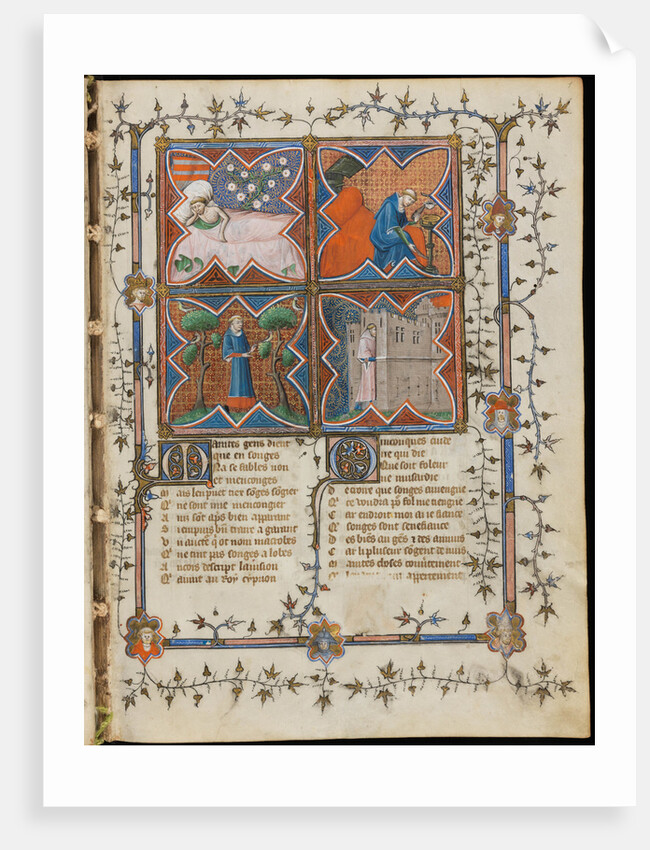 Maintes gens dient
que en songes
Na se fables non
et menconges
M ais len puet tiex sõges sõgier
Q ne sont mie mencongier
A ins sõt ap̃s bien apparant
S i en puis bñ traire a garant
U n auctẽ q̃ ot nom macrobes
Q ne tint pas songes a lobes
A ncois descript lavision
Q avint au roy cypion
Quiconques cuide
ne qui die
Que soit foleur
ne musardie
D e croire que songes aviengne
Q ce voudra po᷑ fol me tiengne
C ar endroit moi ai je fiance
Q songes sont senefiance
D es biẽs au gẽs ⁊ des anuiis
C ar li pluseur sõgent de nuis
M aintes choses couvertement
appertement